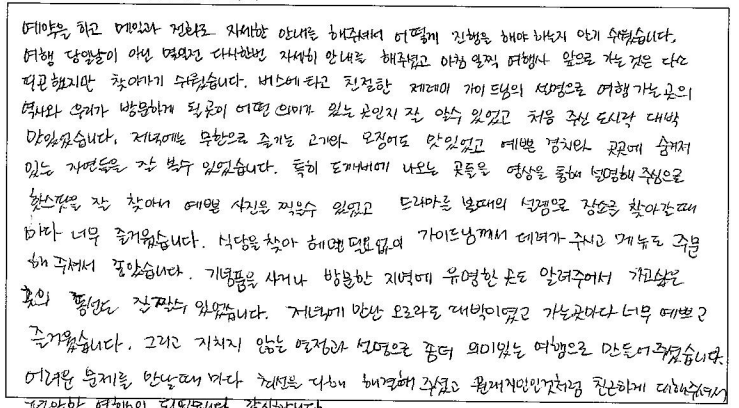 예약을 하고 메일과 전화로 자세한 안내를 해주셔서 어떻게 진행을 해야 하는지 알기 쉬웠습니다.
여행 당일날이 아닌 몇일전 다시한번 자세히 안내를 해주셨고 아침 일찍 여행사 앞으로 가는 것은 다소
피곤했지만 찾아가기 쉬웠습니다. 버스에 타고 친절한 제레미 가이드님의 설명으로 여행 가는 곳의
역사와 우리가 방문하게 될 곳이 어떤 의미가 있는 곳인지 잘 알수 있었고 처음 주신 도시락 대박
맛있었습니다. 저녁에는 무한으로 즐기는 고기와 오징어도 맛있었고 예쁜 경치와 곳곳에 숨겨져
있는 자연들을 잘 볼수 있었습니다. 특히 도깨비에 나오는 곳들을 영상을 통해 설명해 주심으로
핫스팟을 잘 찾아서 예쁜 사진을 찍을수 있었고 드라마를 볼때의 설렘으로 장소를 찾아갈때
마다 너무 즐거웠습니다. 식당을 찾아 헤맬 필요없이 가이드님께서 데려가 주시고 메뉴도 주문
해 주셔서 좋았습니다. 기념품을 사거나 방문한 지역에 유명한 곳도 알려주어서 가고싶은
곳의 동선도 잘 짤수 있었습니다. 저녁에 만난 오로라도 대박이였고 가는곳마다 너무 예쁘고
즐거웠습니다. 그리고 지치지 않는 열정과 설명으로 좀더 의미있는 여행으로 만들어주셨습니다.
어려운 문제를 만날때 마다 최선을 다해 해결해 주셨고 친근하게 대해주셔서